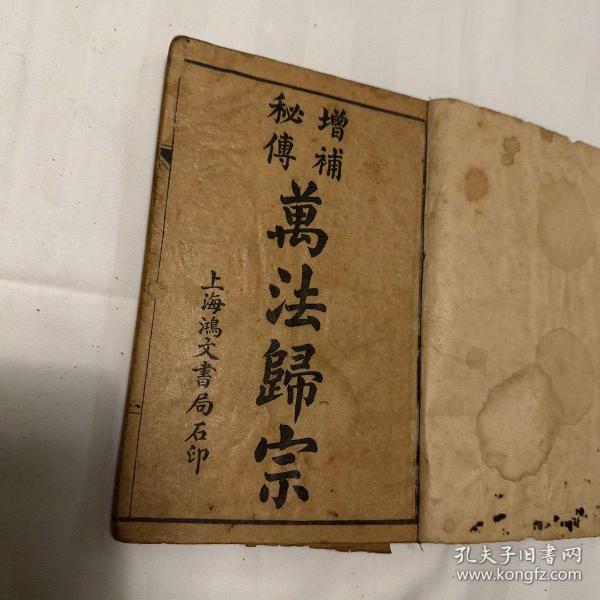 增補
秘傳
萬法歸宗
上海鴻文書局石印
孔夫子旧书网
www.kongfz.com